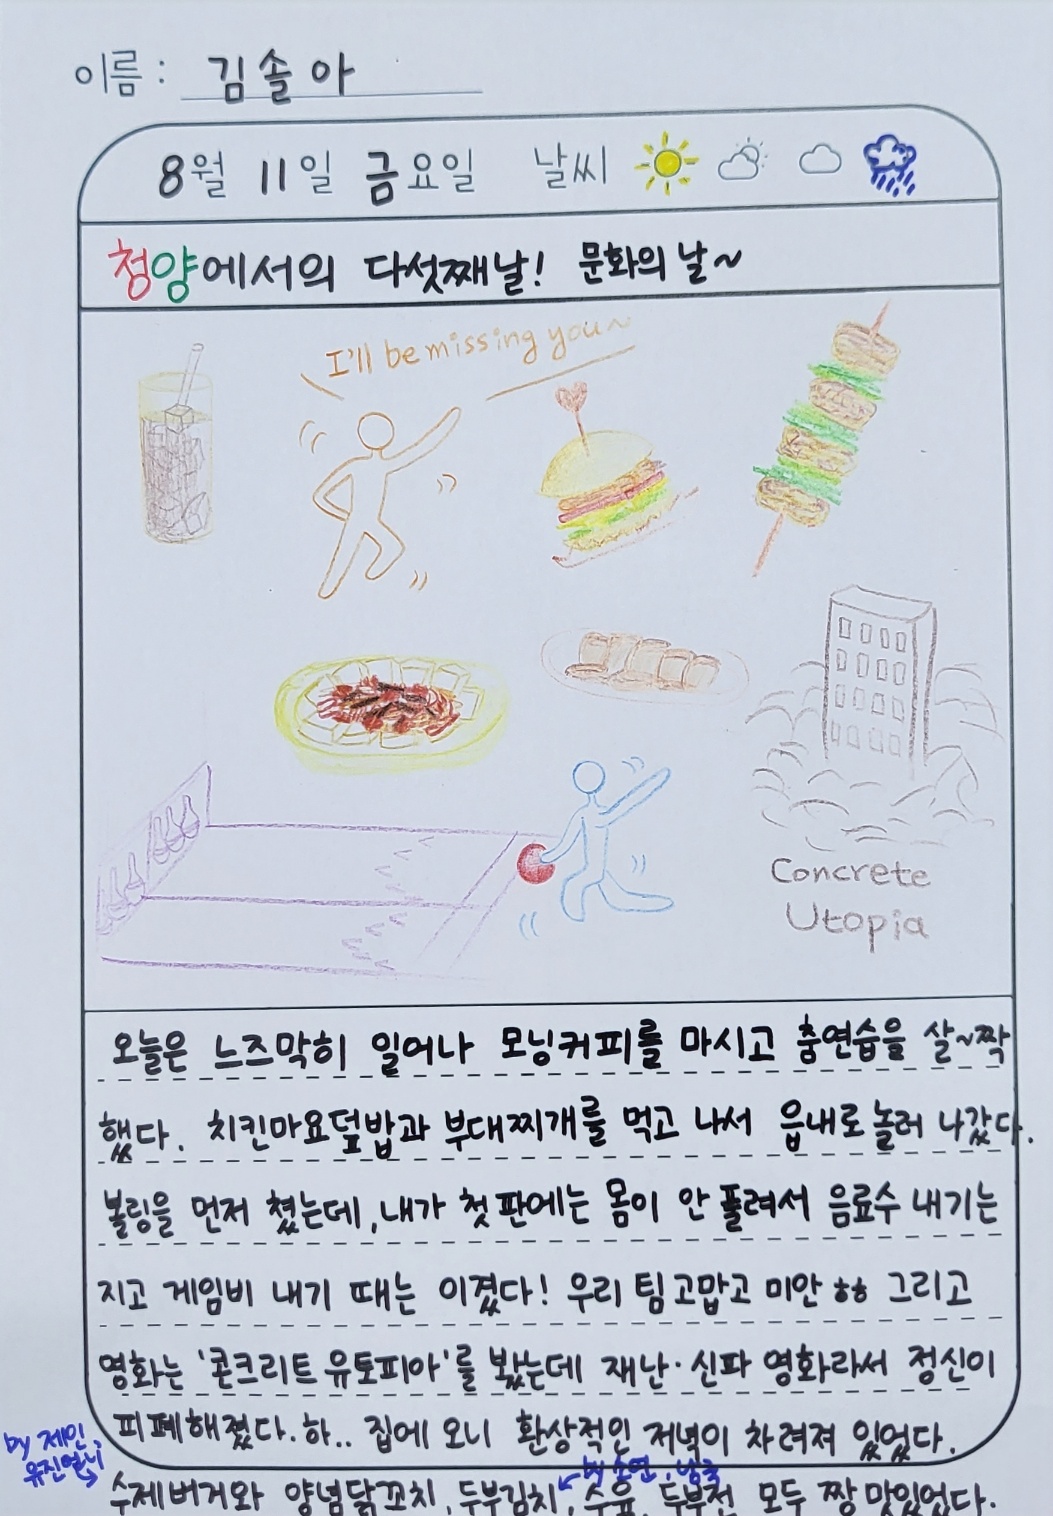 이름 : 김솔아
8월 11일 금요일 날씨
청양에서의 다섯째날! 문화의 날~
I'll be missing you~
Concrete
Utopia
오늘은 느즈막히 일어나 모닝커피를 마시고 춤연습을 살~짝
했다. 치킨마요덮밥과 부대찌개를 먹고 나서 읍내로 놀러 나갔다.
볼링을 먼저 쳤는데, 내가 첫 판에는 몸이 안 풀려서 음료수 내기는
지고 게임비 내기 때는 이겼다! 우리 팀 고맙고 미안 ㅎㅎ 그리고
영화는 '콘크리트 유토피아'를 봤는데 재난·신파 영화라서 정신이
피폐해졌다. 하.. 집에 오니 환상적인 저녁이 차려져 있었다.
by 제인,
유진언니
by 소연,
수제버거와 양념닭꼬치, 두부김치, 수육, 두부전 모두 짱 맛있었다.